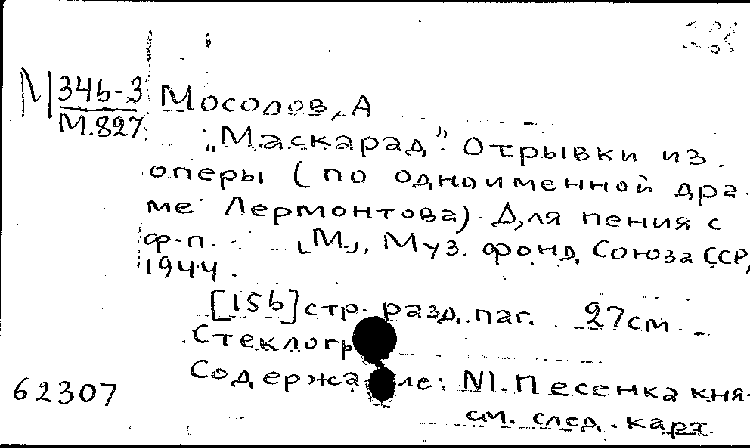 М 34б-3 Мосолов, А
М.827
„Маскарад“. Отрывки из
оперы (по одноименной дра-
ме Лермонтова) Для пения с
ф-п. [М.], Муз. фонд Союза ССР,
1944.
[156] стр. разд. паг. 27 см
Стеклогр
Содержание: №1. Песенка кня-
62307
см. след. карт.